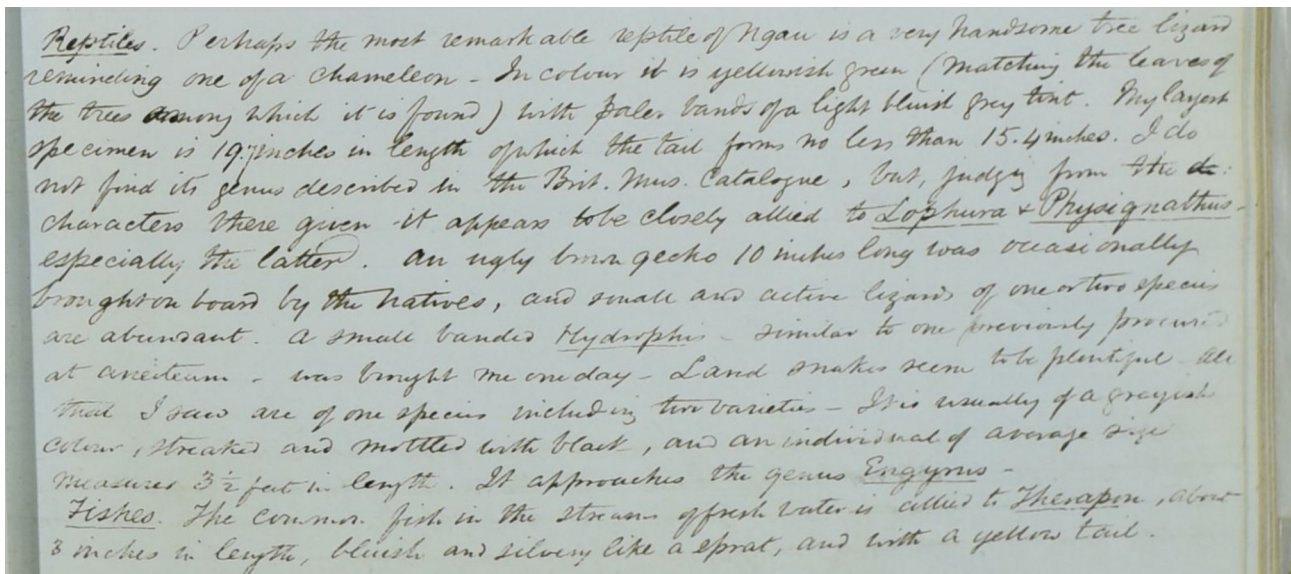 Reptiles. Perhaps the most remarkable reptile of Ngau is a very handsome tree lizard
reminding one of a chameleon - In colour it is yellowish green (matching the leaves of
the trees among which it is found) with paler bands of a light bluish grey tint. My largest
specimen is 19.7 inches in length of which the tail forms no less than 15.4 inches. I do
not find its genus described in the Brit. Mus. Catalogue, but, judging from the
characters there given it appears to be closely allied to Lophura & Physignathus -
especially the latter. An ugly brown gecko 10 inches long was occasionally
brought on board by the natives, and small and active lizards of one or two species
are abundant. A small banded Hydrophis - similar to one previously procured
at Aneiteum - was brought me one day - Land snakes seem to be plentiful - All
that I saw are of one species including two varieties - It is usually of a greyish
colour, streaked and mottled with black, and an individual of average size
measures 3½ feet in length. It approaches the genus Engyrus -
Fishes. The common fish in the streams of fresh water is allied to Therapon, about
3 inches in length, bluish and silvery like a sprat, and with a yellow tail.